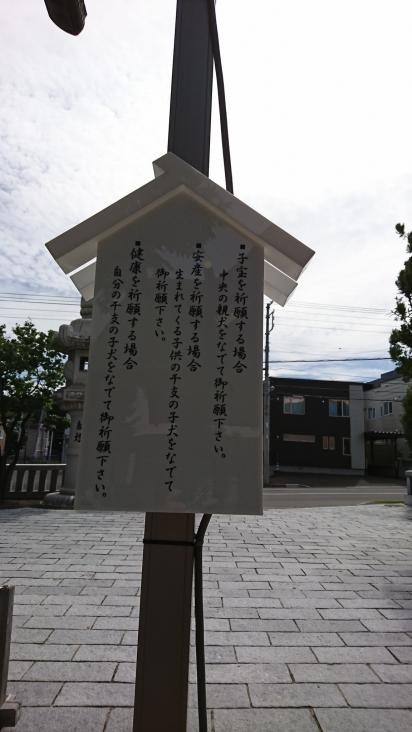 ■子宝を祈願する場合
中央の親犬をなでて御祈願下さい。
■安産を祈願する場合
生まれてくる子供の干支の子犬をなでて
御祈願下さい。
■健康を祈願する場合
自分の干支の子犬をなでて御祈願下さい。